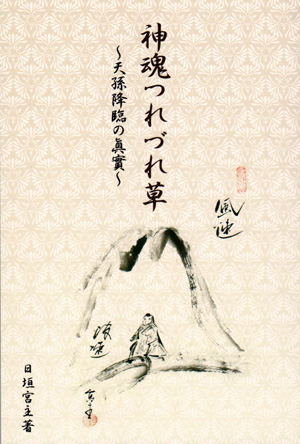 神魂つれづれ草
〜天孫降臨の眞實〜
風速
日垣宮主著